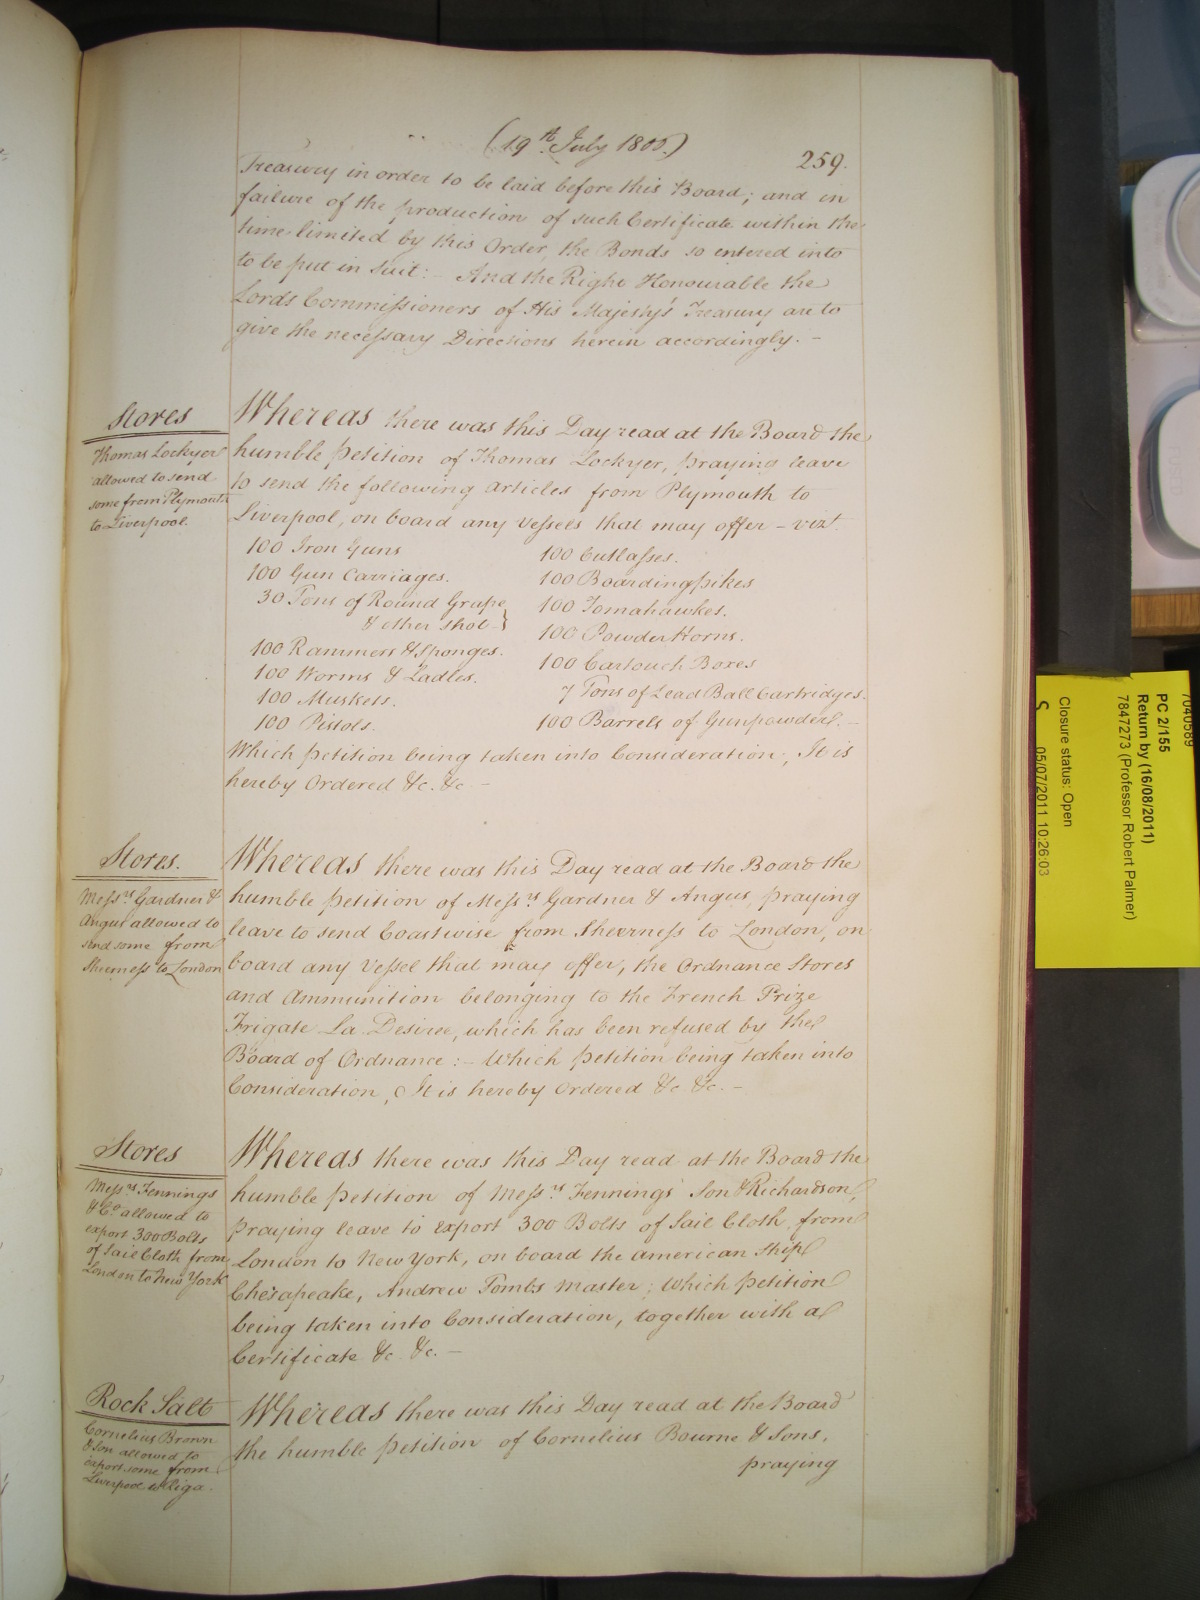 (19th July 1800.)
259.
Treasury in order to be laid before this Board; and in
failure of the production of such Certificate within the
time limited by this Order, the Bonds so entered into
to be put in Suit: - And the Right Honourable the
Lords Commissioners of His Majesty's Treasury are to
give the necessary Directions herein accordingly. -
Stores
Thomas Lockyer
allowed to send
some from Plymouth
to Liverpool.
Whereas there was this Day read at the Board the
humble petition of Thomas Lockyer, praying leave
to send the following Articles from Plymouth to
Liverpool, on board any Vessels that may offer - vizt.
100 Iron Guns
100 Gun Carriages.
30 Tons of Round Grape
& other shot }
100 Rammers & Sponges.
100 Worms & Ladles.
100 Muskets.
100 Pistols.
100 Cutlasses.
100 Boardingpikes
100 Tomahawkes.
100 Powder Horns.
100 Cartouch Boxes
7 Tons of Lead Ball Cartridges.
100 Barrels of Gunpowder. -
Which petition being taken into Consideration, It is
hereby Ordered &c. &c -
Stores.
Messrs Gardner &
Angus allowed to
send some from
Sheerness to London
Whereas there was this Day read at the Board the
humble petition of Messrs Gardner & Angus, praying
leave to send Coastwise from Sheerness to London, on
board any Vessel that may offer, the Ordnance Stores
and Ammunition belonging to the French Prize
Frigate La Desiree, which has been refused by the
Board of Ordnance: - Which petition being taken into
Consideration, It is hereby Ordered &c &c. -
Stores
Messrs Jennings
& Co allowed to
export 300 Bolts
of Sail Cloth from
London to New York
Whereas there was this Day read at the Board the
humble petition of Messrs Jennings' Son & Richardson,
praying leave to export 300 Bolts of Sail Cloth from
London to New York, on board the American Ship
Chesapeake, Andrew Tombs Master; Which petition
being taken into Consideration, together with a
Certificate &c. &c. -
Rock Salt
Cornelius Brown
& Son allowed to
export some from
Liverpool to Riga.
Whereas there was this Day read at the Board
the humble petition of Cornelius Bourne & Sons,
praying
PC 2/155
Return by (16/08/2011)
7847273 (Professor Robert Palmer)
Closure status: Open
05/07/2011 10:26:03